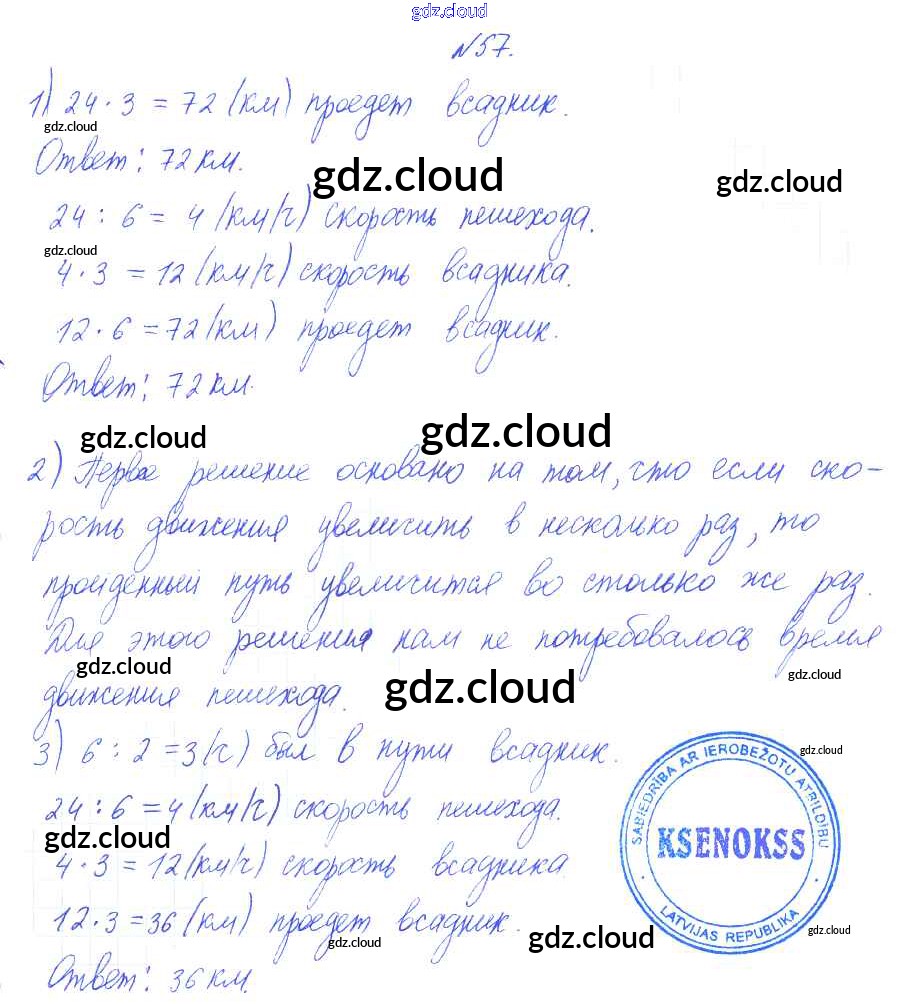 gdz.cloud
№57.
1) 24 · 3 = 72 (км) проедет всадник.
gdz.cloud
Ответ: 72 км.
gdz.cloud
gdz.cloud
24 : 6 = 4 (км/ч) скорость пешехода.
gdz.cloud
4 · 3 = 12 (км/ч) скорость всадника.
12 · 6 = 72 (км) проедет всадник.
Ответ: 72 км.
gdz.cloud
gdz.cloud
2) Первое решение основано на том, что если ско-
рость движения увеличить в несколько раз, то
пройденный путь увеличится во столько же раз.
Для этого решения нам не потребовалось время
gdz.cloud
gdz.cloud
gdz.cloud
движения пешехода.
3) 6 : 2 = 3 (ч) был в пути всадник.
gdz.cloud
24 : 6 = 4 (км/ч) скорость пешехода.
gdz.cloud
4 · 3 = 12 (км/ч) скорость всадника
12 · 3 = 36 (км) проедет всадник.
gdz.cloud
gdz.cloud
gdz.cloud
Ответ: 36 км.
SABIEDRĪBA AR IEROBEŽOTU ATBILDĪBU
KSENOKSS
LATVIJAS REPUBLIKA